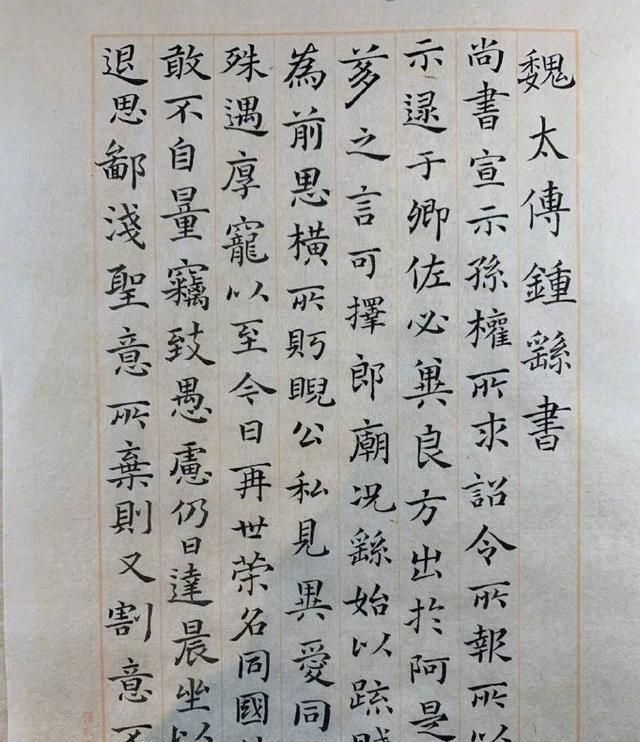 魏太傅鍾繇書
尚書宣示孫權所求詔令所報所以
示逯于卿佐必冀良方出於阿是
芻之言可擇郎廟况繇始以疏賤
為前恩横所眄睨公私見異愛同
殊遇厚寵以至今日再世榮名同國
敢不自量竊致愚慮仍日達晨坐以
退思鄙淺聖意所棄則又割意不